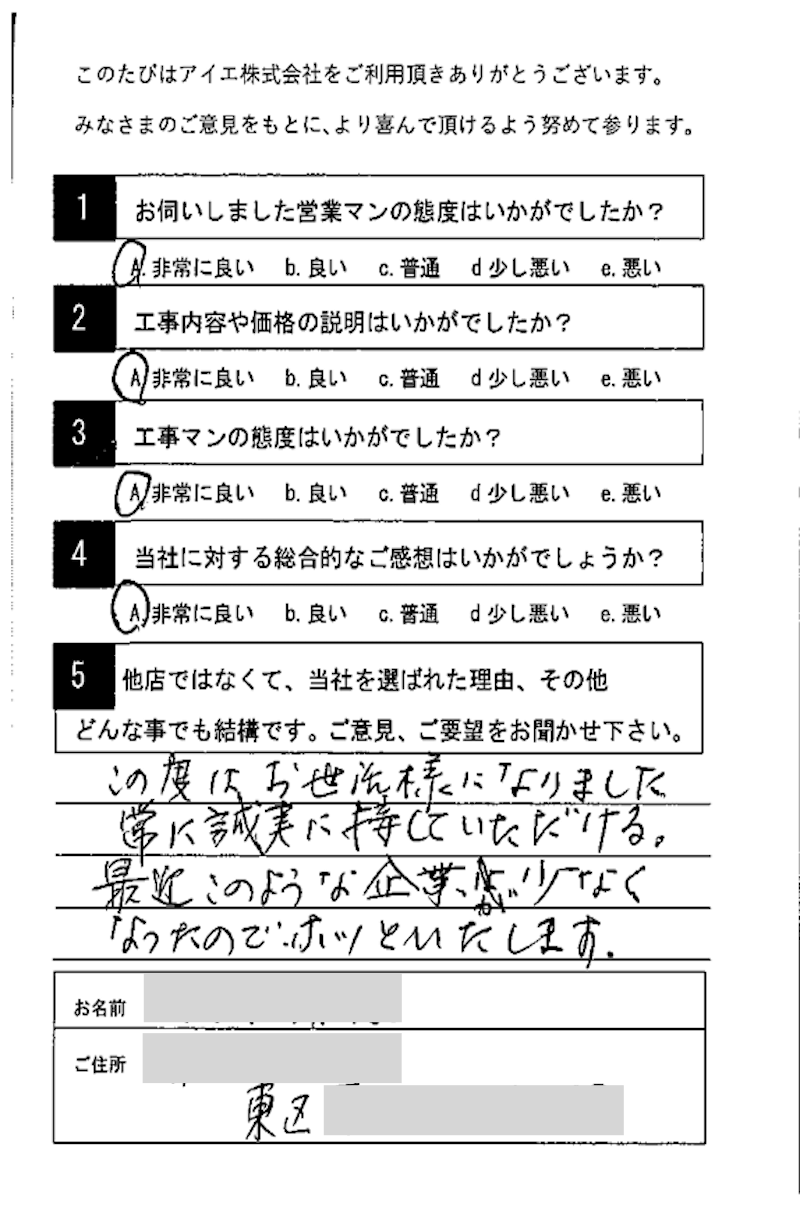 このたびはアイエ株式会社をご利用頂きありがとうございます。
みなさまのご意見をもとに、より喜んで頂けるよう努めて参ります。
1 お伺いしました営業マンの態度はいかがでしたか?
A. 非常に良い b. 良い c. 普通 d 少し悪い e. 悪い
2 工事内容や価格の説明はいかがでしたか?
A. 非常に良い b. 良い c. 普通 d 少し悪い e. 悪い
3 工事マンの態度はいかがでしたか?
A. 非常に良い b. 良い c. 普通 d 少し悪い e. 悪い
4 当社に対する総合的なご感想はいかがでしょうか?
A. 非常に良い b. 良い c. 普通 d 少し悪い e. 悪い
5 他店ではなくて、当社を選ばれた理由、その他
どんな事でも結構です。ご意見、ご要望をお聞かせ下さい。
この度はお世話様になりました
常に誠実に接していただける。
最近このような企業が少なく
なったのでホッといたします.
お名前
ご住所
東区